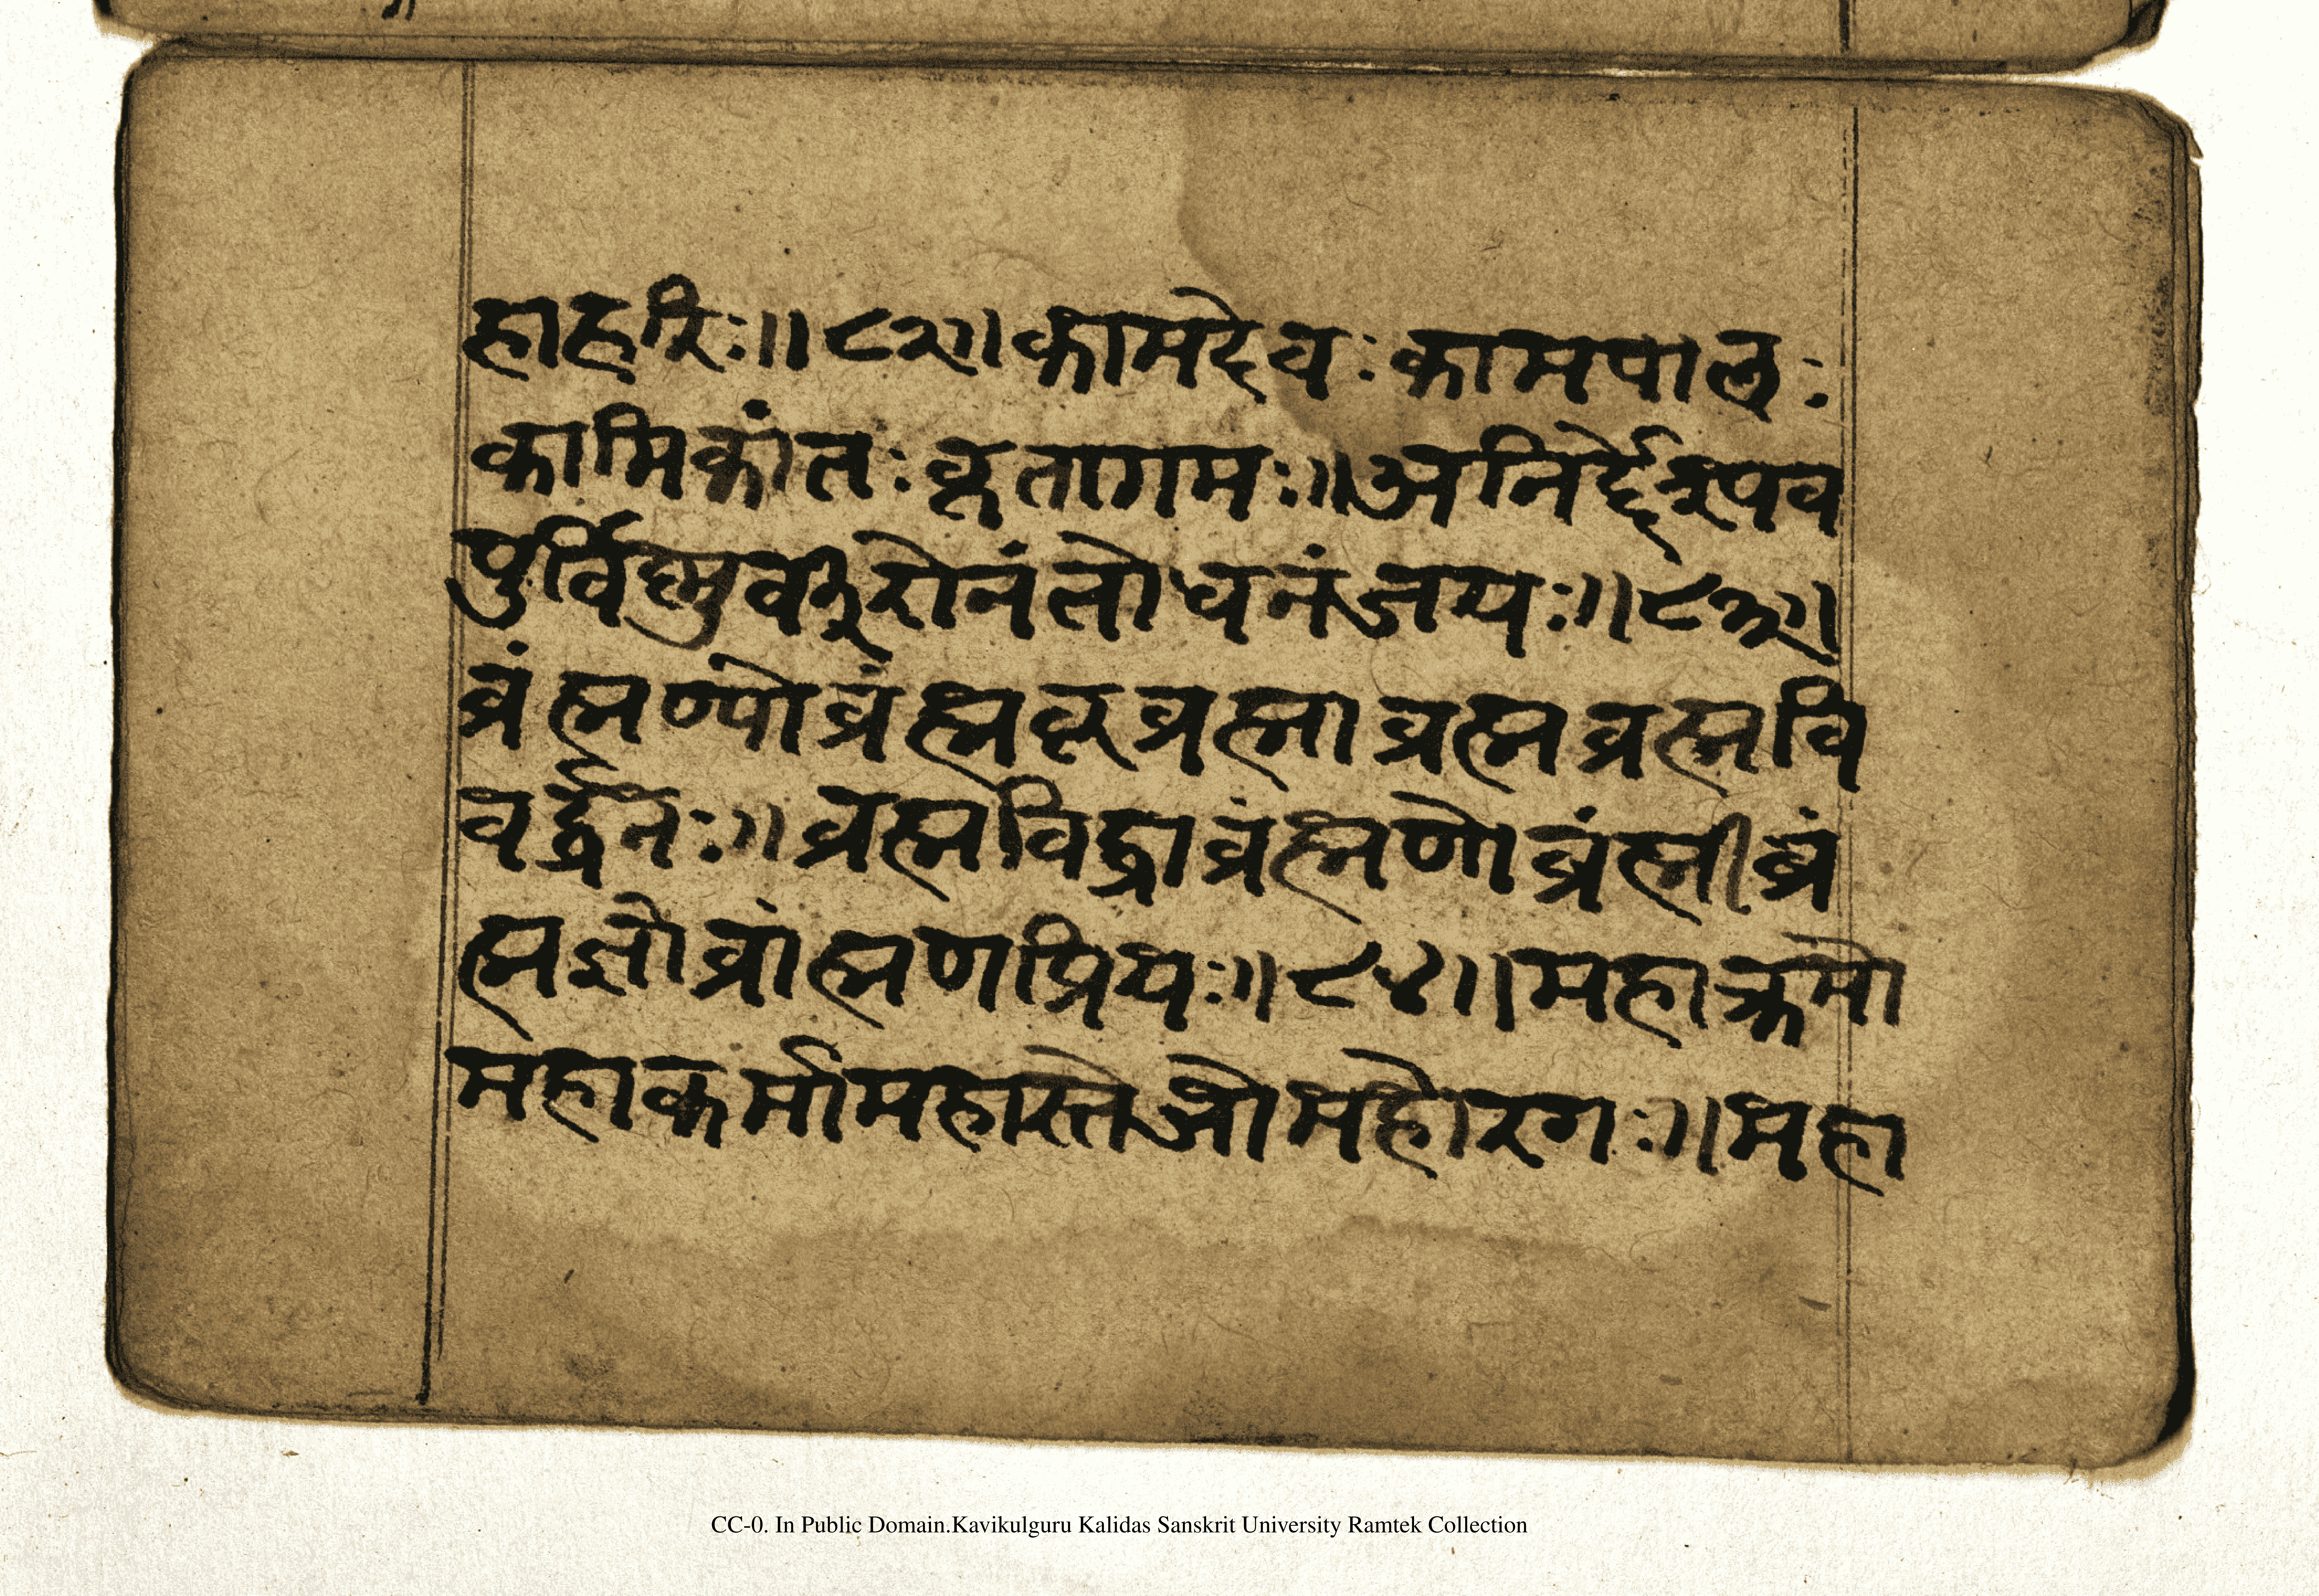 हाहरिः॥८२॥कामदेवःकामपालः
कामिकांतःकृतागमः॥अनिर्द्देश्रूपव
पुर्विष्णुवर्वीरोनंतोधनंजयः॥८३॥
व्रंह्मण्योव्रंह्मकृव्रह्माव्रह्मव्रह्मवि
वर्द्धनः॥व्रह्मविद्व्राव्रंह्मणोव्रंह्मीव्रं
ह्मज्ञोव्रांह्मणप्रियः॥८४॥महाक्रमो
महाकर्मामहास्तेजोमहोरगः॥महा
CC-0. In Public Domain.Kavikulguru Kalidas Sanskrit University Ramtek Collection